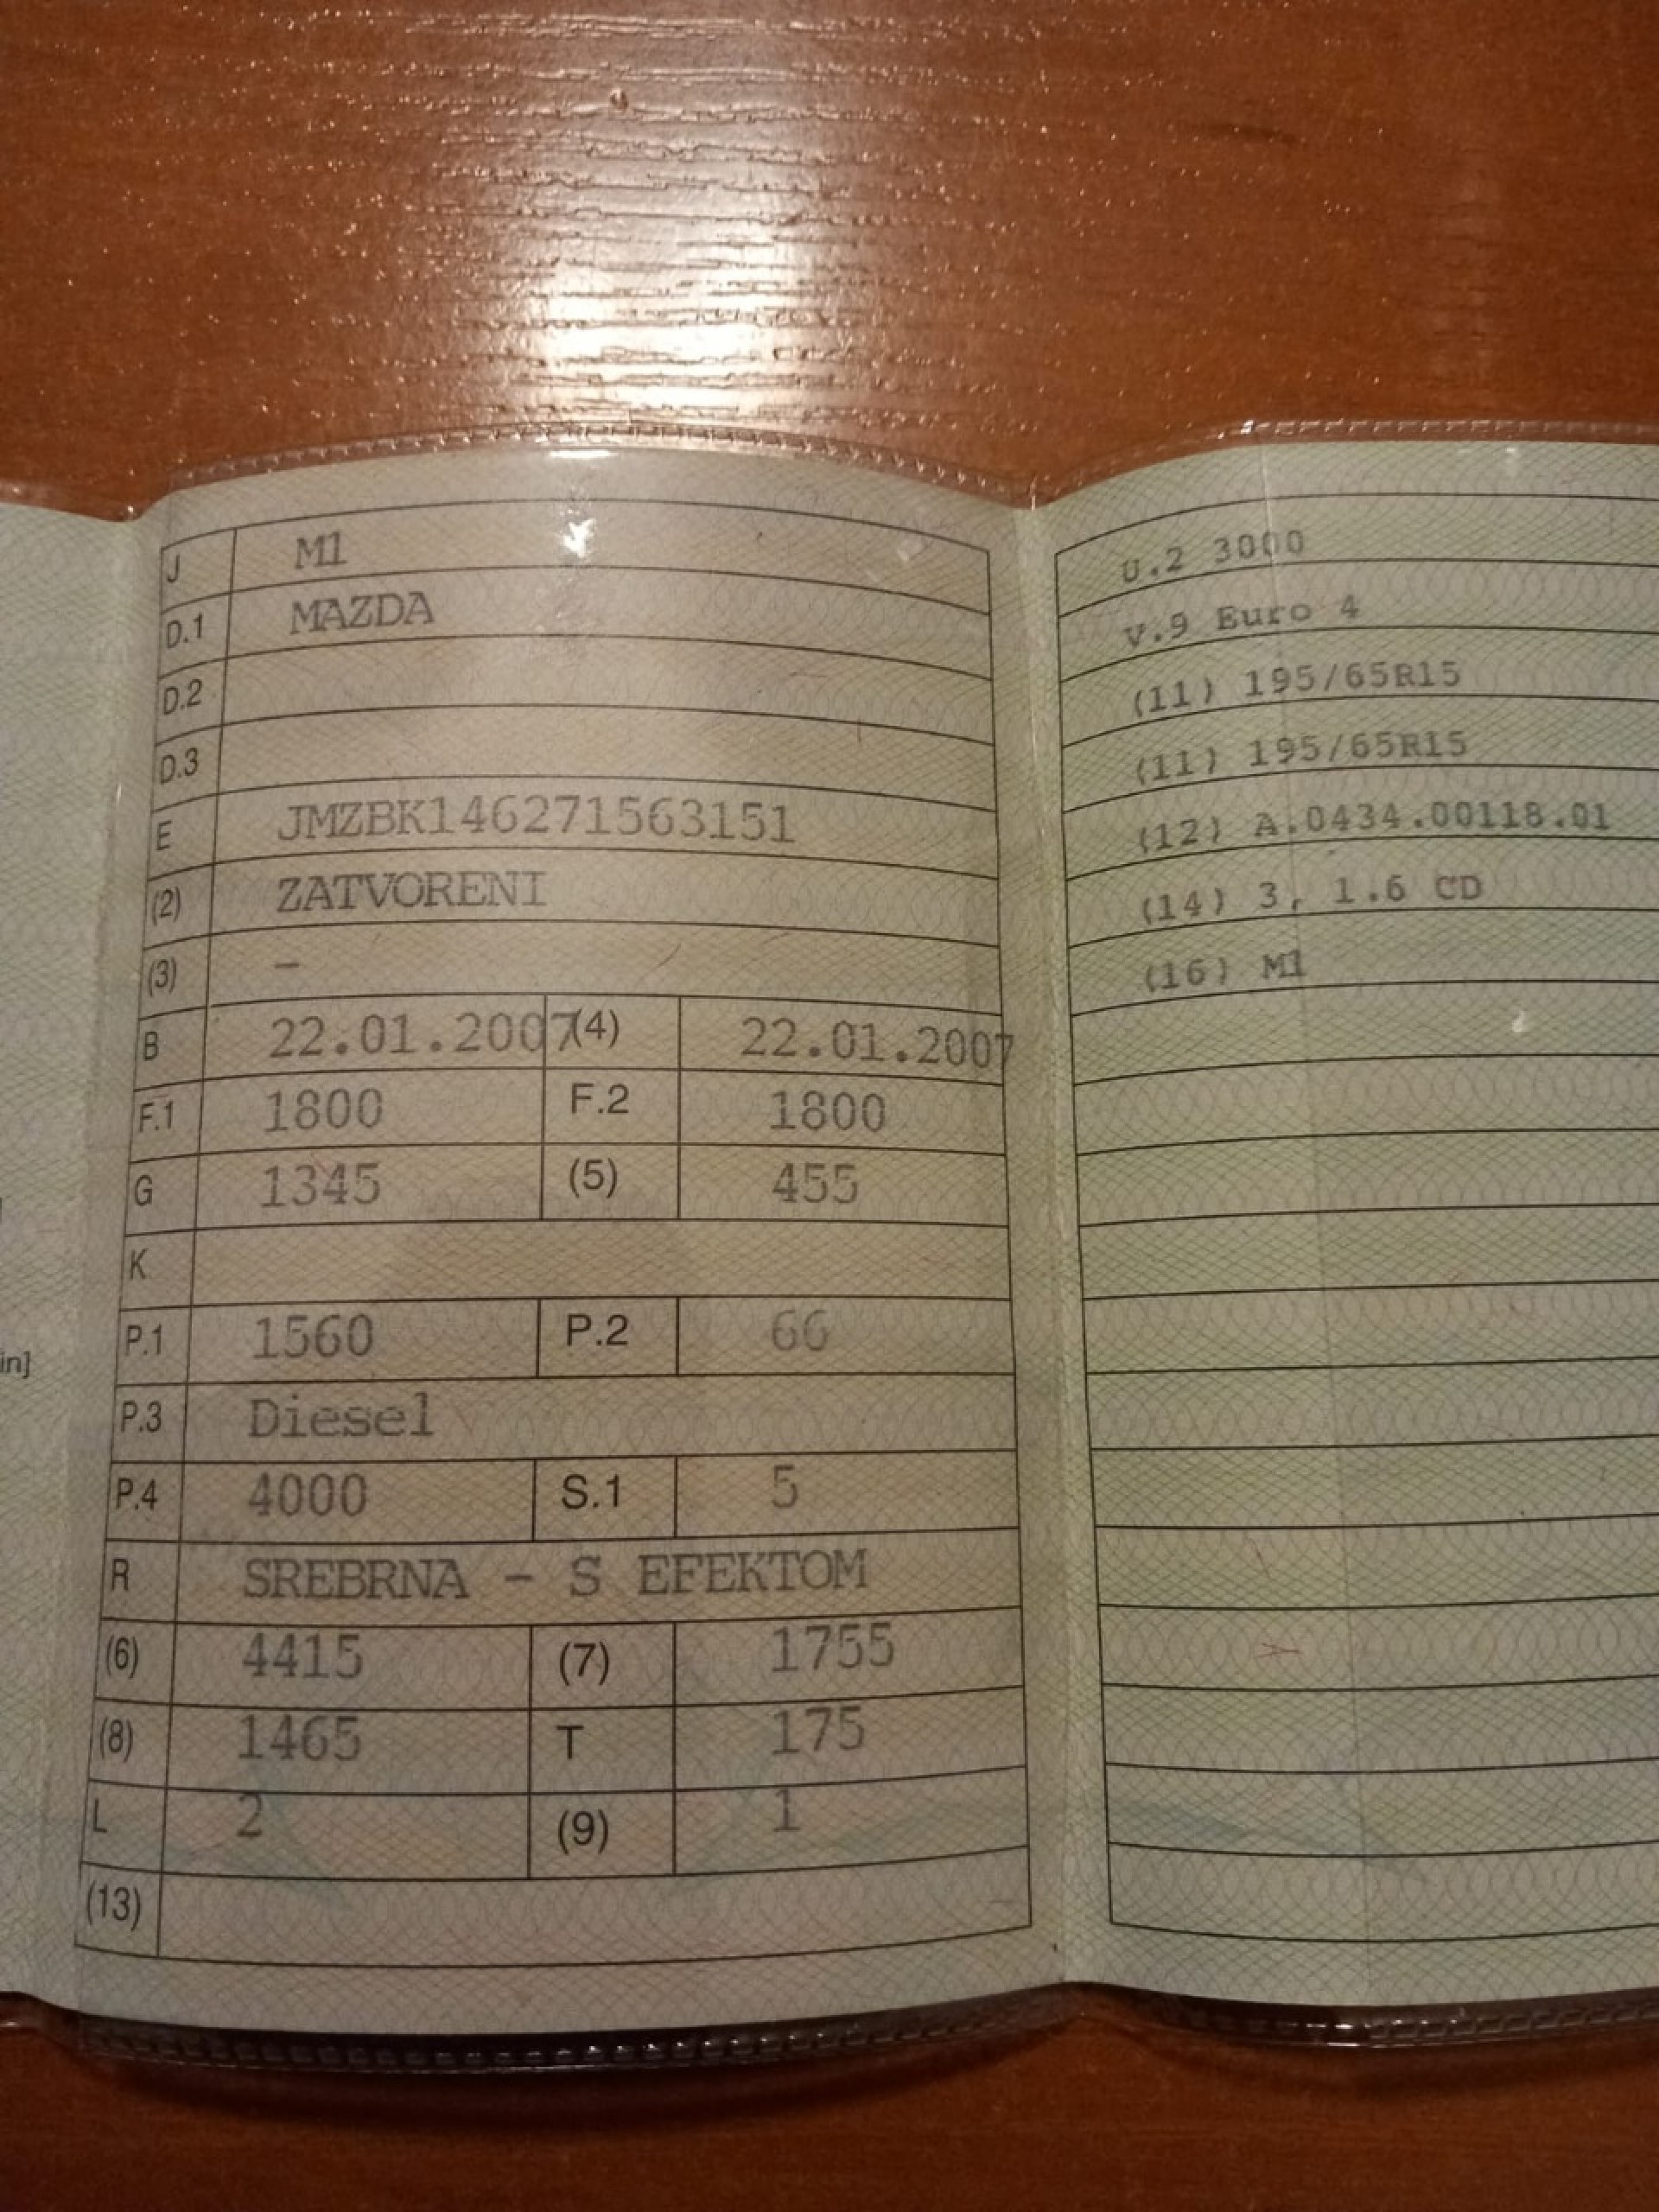 J M1
D.1 MAZDA
D.2
D.3
E JMZBK146271563151
(2) ZATVORENI
(3) -
B 22.01.2007 (4) 22.01.2007
F.1 1800 F.2 1800
G 1345 (5) 455
K
P.1 1560 P.2 66
P.3 Diesel
P.4 4000 S.1 5
R SREBRNA - S EFEKTOM
(6) 4415 (7) 1755
(8) 1465 T 175
L 2 (9) 1
(13)
U.2 3000
V.9 Euro 4
(11) 195/65R15
(11) 195/65R15
(12) A.0434.00118.01
(14) 3, 1.6 CD
(16) M1
in]